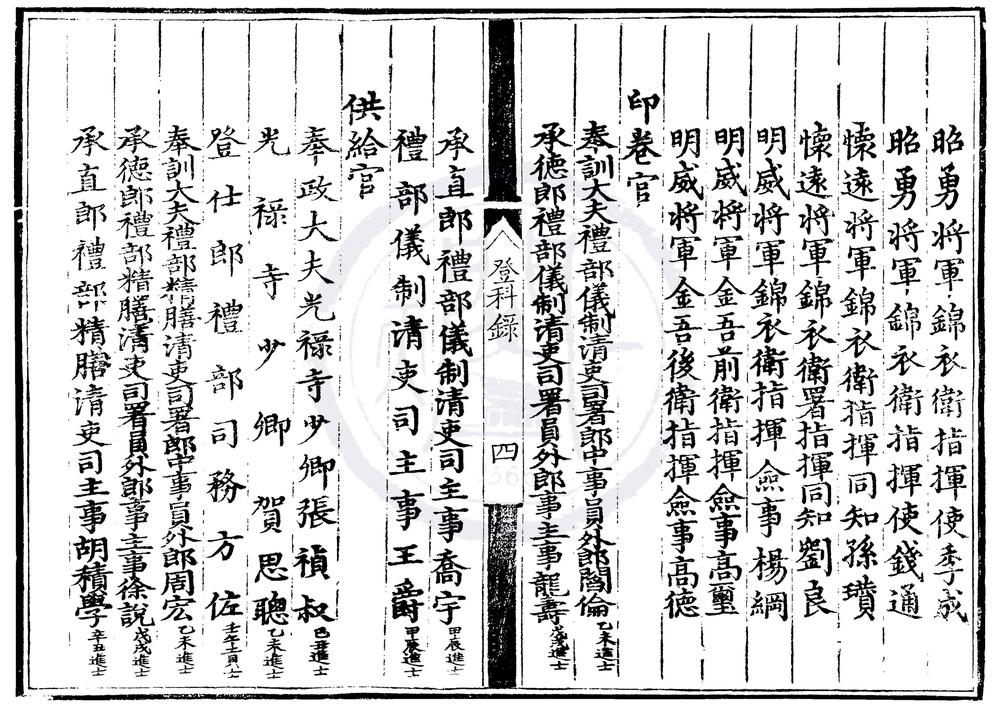 昭勇將軍錦衣衛指揮使季成
昭勇將軍錦衣衛指揮使錢通
懷遠將軍錦衣衛指揮同知孫瓚
懷遠將軍錦衣衛署指揮同知劉良
明威將軍錦衣衛指揮僉事楊綱
明威將軍金吾前衛指揮僉事高璽
明威將軍金吾後衛指揮僉事高德
印卷官
奉訓大夫禮部儀制清吏司署郎中事員外郎閻倫乙未進士
承德郎禮部儀制清吏司署員外郎事主事龍壽戊戌進士
登科錄
四
承直郎禮部儀制清吏司主事喬宇甲辰進士
禮部儀制清吏司主事王爵甲辰進士
供給官
奉政大夫光祿寺少卿張禎叔己丑進士
光祿寺少卿賀思聰乙未進士
登仕郎禮部司務方佐壬午貢士
奉訓大夫禮部精膳清吏司署郎中事員外郎周宏乙未進士
承德郎禮部精膳清吏司署員外郎事主事徐說戊戌進士
承直郎禮部精膳清吏司主事胡積學辛丑進士